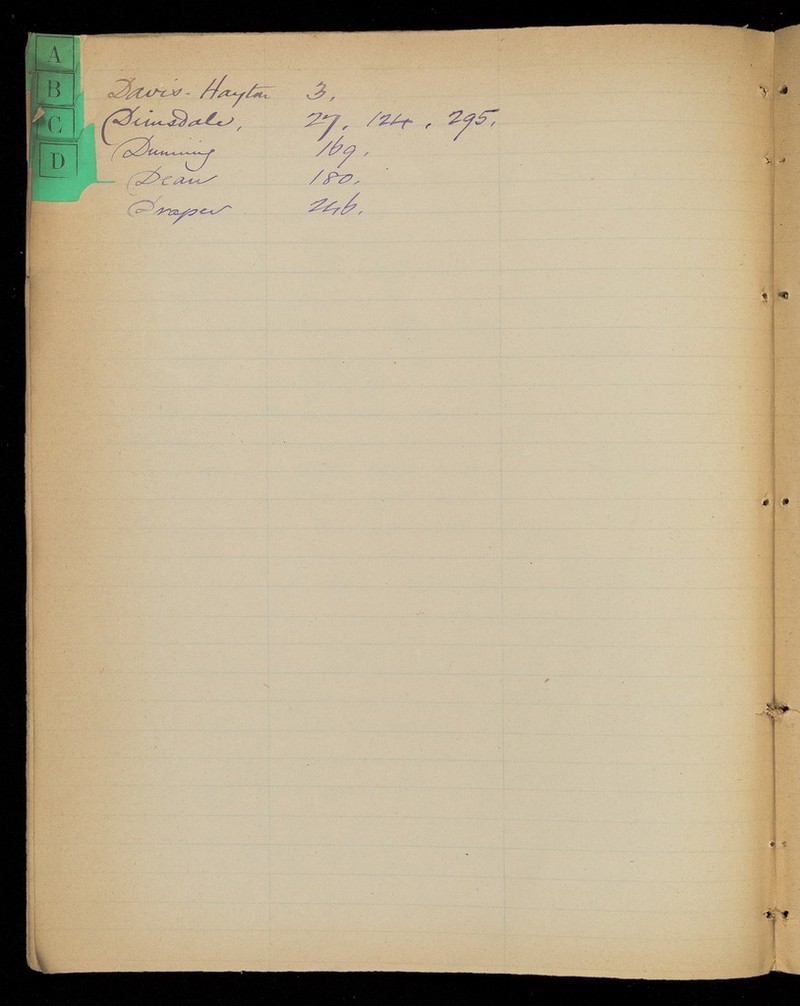 A
B
C
D
Davis-Hayton 3.
Dimsdale, 27, 124, 295.
Dunning 169.
Dean 180.
Draper 246.